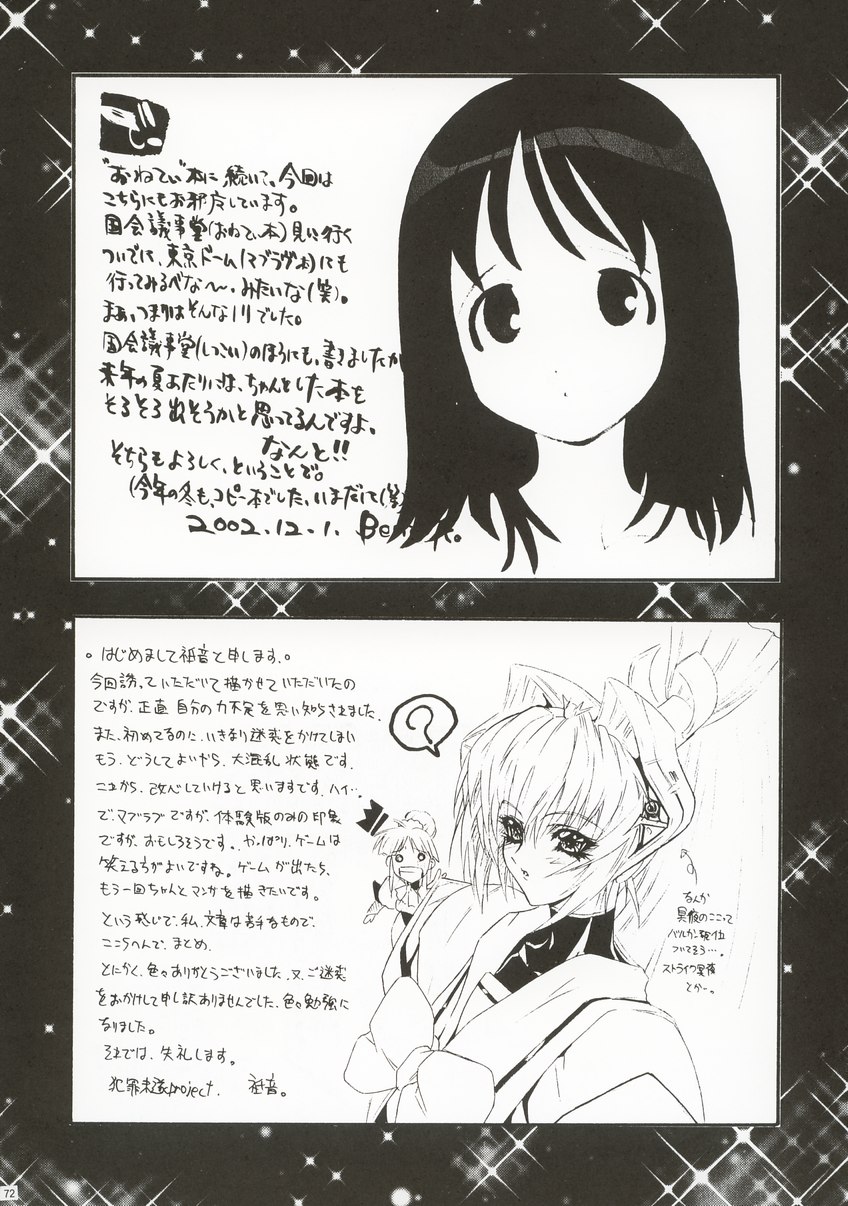 "おねてぃ"本に続いて、今回は
こちらにもお邪魔しています。
国会議事堂(おねてぃ本)見に行く
ついでに、東京ドーム(マブラヴ本)にも
行ってみるべな〜、みたいな(笑)。
まぁ、つまりはそんなノリでした。
国会議事堂(しつこい)のほうにも、書きましたが
来年の夏あたりには、ちゃんとした本を
そろそろ出そうかと思ってるんですよ。
なんと!!
そちらもよろしく、ということで。
(今年の冬も、コピー本でした、いまだに(笑)
2002.12.1.
。はじめまして祗音と申します。。
今回誘っていただいて描かせていただいたの
ですが、正直自分の力不足を思い知らされました。
また、初めてるのに、いきなり迷惑をかけてしまい
もう、どうしてよいやら、大混乱状態です。
これから、改心していけると思いますです、ハイ…
で、マブラブですが、体験版のみの印象
ですが、おもしろそうです。やっぱり、ゲームは
笑える方がよいですね。ゲームが出たら、
もう一回ちゃんとマンガを描きたいです。
という感じで、私、文章は苦手なもので、
ここらへんで、まとめ。
とにかく、色々ありがとうございました。又、ご迷惑
をおかけして申し訳ありませんでした、色々勉強に
なりました。
それでは、失礼します。
犯罪未遂project. 祗音。
?
なんか
冥夜のここって
バルカン砲位
ついてそう…。
ストライク冥夜
とかー。
72